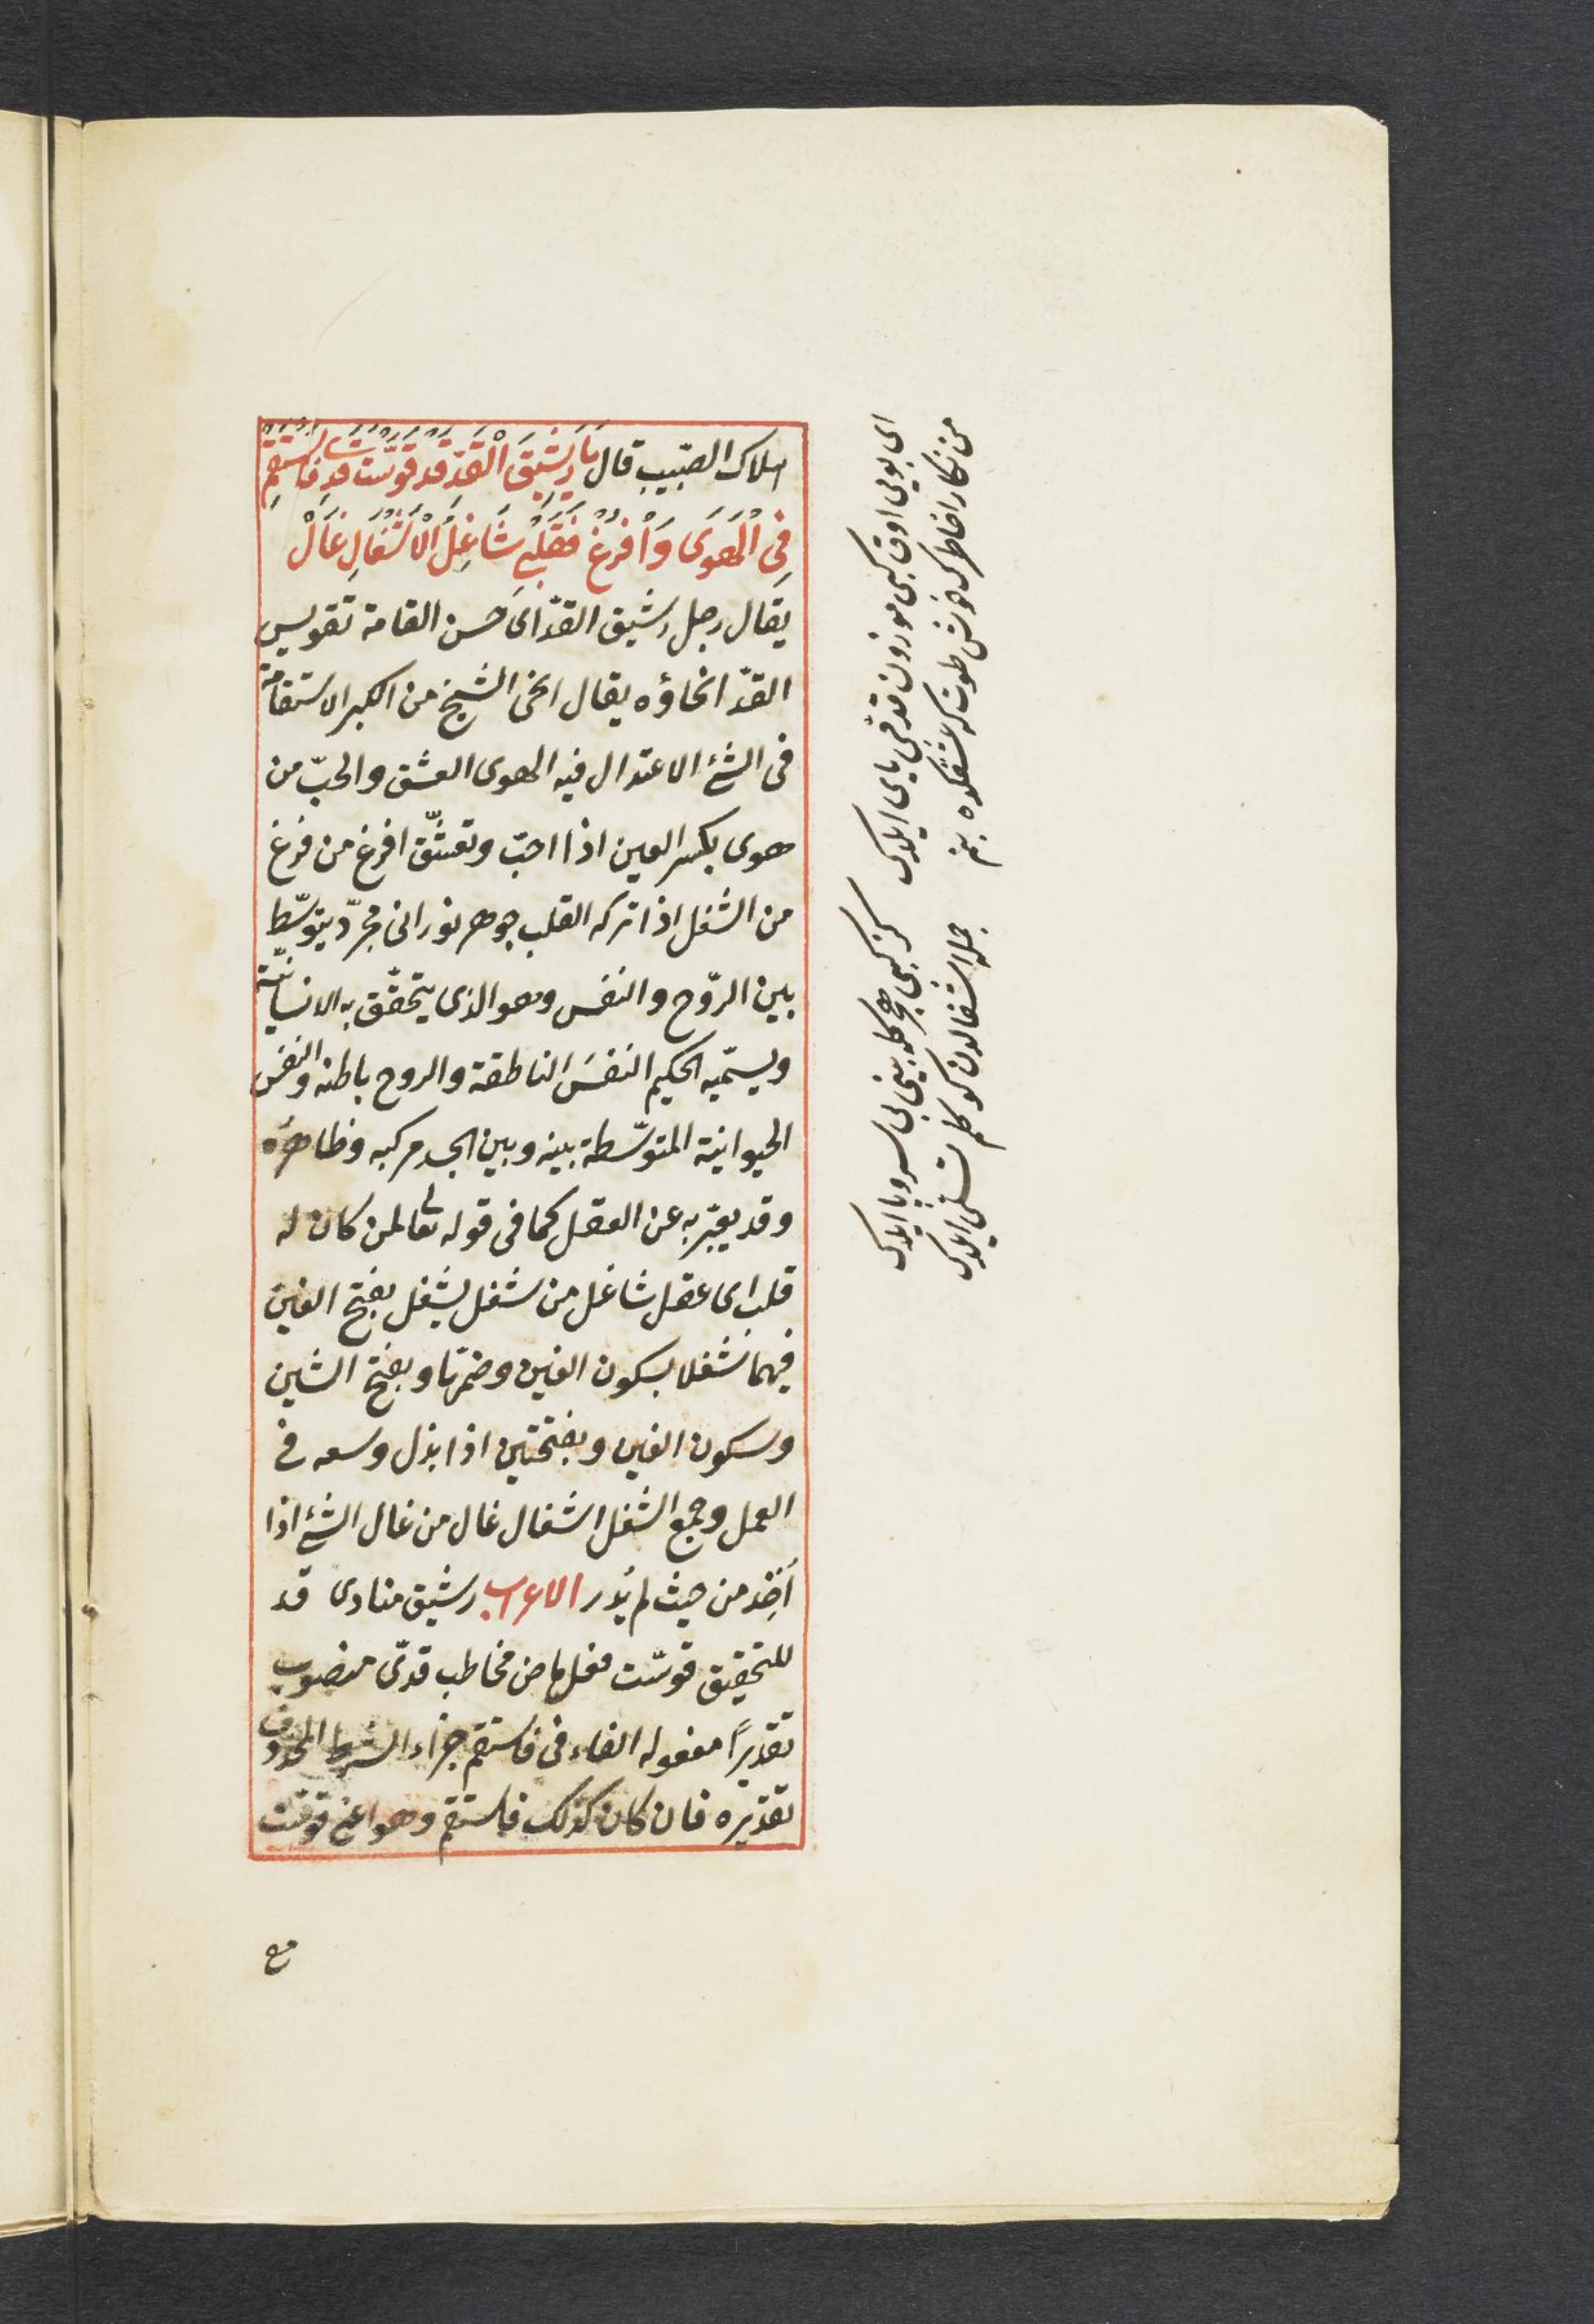 اسلاك الصّبيب قال يَا رَشِيقَ الْقَدِّ قَدْ قَوَّسْتَ قَدِّى فَاسْتَقِمْ
فِى الْهَوَى وَافْرُغْ فَقَلْبِى شَاغِلُ الْاَشْغَالِ غَالْ
يقال رجل رشيق القدّ اى حسن القامة تقويس
القدّ انحاؤه يقال انحنى الشيخ من الكبر الاستقامة
فى الشئ الاعتدال فيه الهوى العشق والحبّ من
هوى بكسر العين اذا احبّ وتعشّق افرغ من فرغ
من الشغل اذا تركه القلب جوهر نورانى مجرّد يتوسّط
بين الرّوح والنفس وهو الذى يتحقّق به الانسانيّة
ويسمّيه الحكيم النفسَ الناطقة والروح باطنه والنفس
الحيوانية المتوسّطة بينه وبين الجسد مركبه وظاهره
وقد يعبّر به عن العقل كما فى قوله تعالى لمن كان له
قلب اى عقل شاغل من شغل يشغل بفتح الغين
فيهما شغلا بسكون الغين وضمّها وبفتح الشين
وسكون الغين وبفتحتين اذا بذل وسعه فى
العمل وجمع الشغل اشغال غال من غال الشئ اذا
أخِذ من حيث لم يُدر الاعراب رشيق منادى قد
للتحقيق قوّست فعل ماض مخاطب قدّى منصوب
تقديراً مفعوله الفاء فى فاستقم جزاء الشرط المحذوف
تقديره فان كان كذلك فاستقم وهو اعنى قوّست
مع
اى بويى اوق كبى موزون قدمى ياى ايلدك
من نكارا خاطرك خوش طوت كه عشقكده بنم
كز كبى هجركله بينى بى سر و پا ايلدك
جمله اشغالدن كوكلم تسلى ايلدك